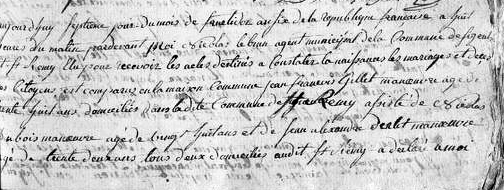 aujourd'huy septieme jour du mois de fructidor an six de la republique francaise a huit
heures du matin pardevant moi Nicolas lebrun agent municipal de la Commune de
et St Remy elu pour recevoir les actes destinés a constater la naissance les mariages et deces
des Citoyens est comparu en la maison Commune jean francois Gillet manœuvre age de
trente huit ans domicilies dans la dite Commune de Remy assisté de Nicolas
dubois manœuvre age de vingt huit ans et de jean alexandre manœuvre
age de trente deux ans tous deux domiciliés audit St remy a declaré a moi